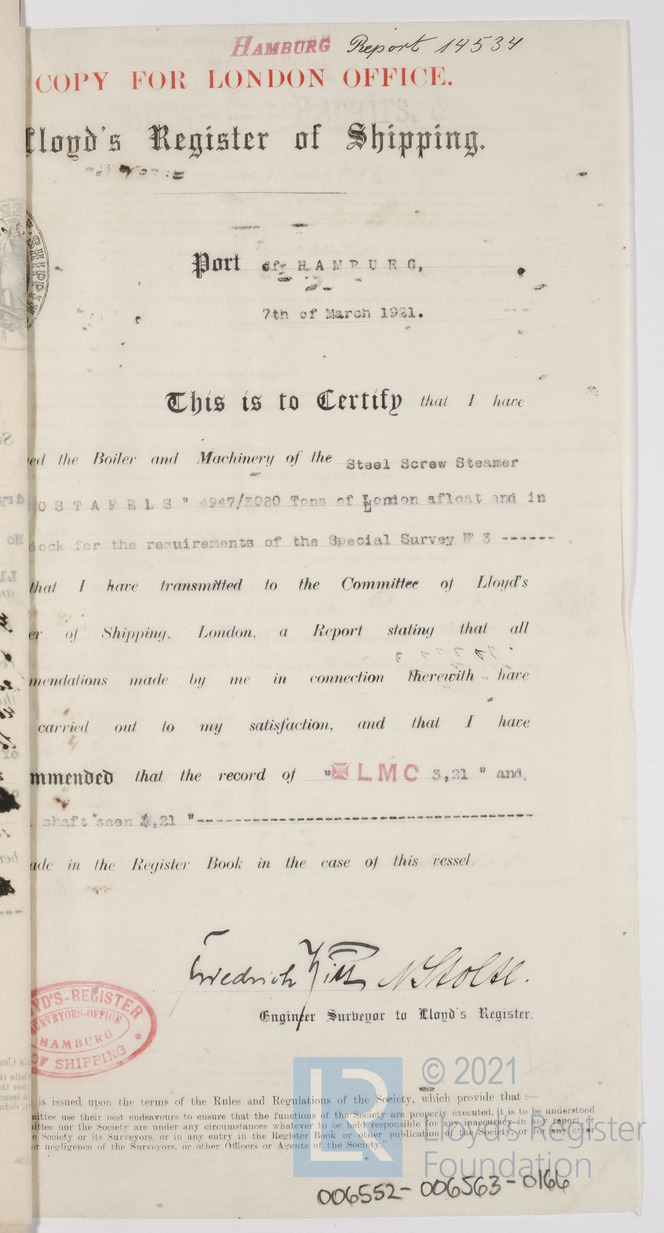 HAMBURG Report 14534
COPY FOR LONDON OFFICE.
Lloyd's Register of Shipping.
Port of HAMBURG,
7th of March 1921.
This is to Certify that I have
ed the Boiler and Machinery of the Steel Screw Steamer
OSTAFELS" 4947/3080 Tons of London afloat and in
dock for the requirements of the Special Survey No 3 ------
that I have transmitted to the Committee of Lloyd's
er of Shipping, London, a Report stating that all
mendations made by me in connection therewith have
carried out to my satisfaction, and that I have
mmended that the record of "✠ LMC 3,21 " and,
shaft seen 3,21 "------------------------------------
ade in the Register Book in the case of this vessel
Friedrich N Stolte.
Engineer Surveyor to Lloyd's Register.
LLOYD'S-REGISTER
SURVEYORS-OFFICE
HAMBURG
OF SHIPPING
is issued upon the terms of the Rules and Regulations of the Society, which provide that :—
mittee use their best endeavours to ensure that the functions of the Society are properly executed, it is to be understood
ittee nor the Society are under any circumstances whatever to be held responsible for any inaccuracy in any report or
e Society or its Surveyors, or in any entry in the Register Book or other publication of the Society, or for any error
or negligence of the Surveyors, or other Officers or Agents of the Society"
LR
© 2021
Lloyd's Register
Foundation
006552-006563-0166